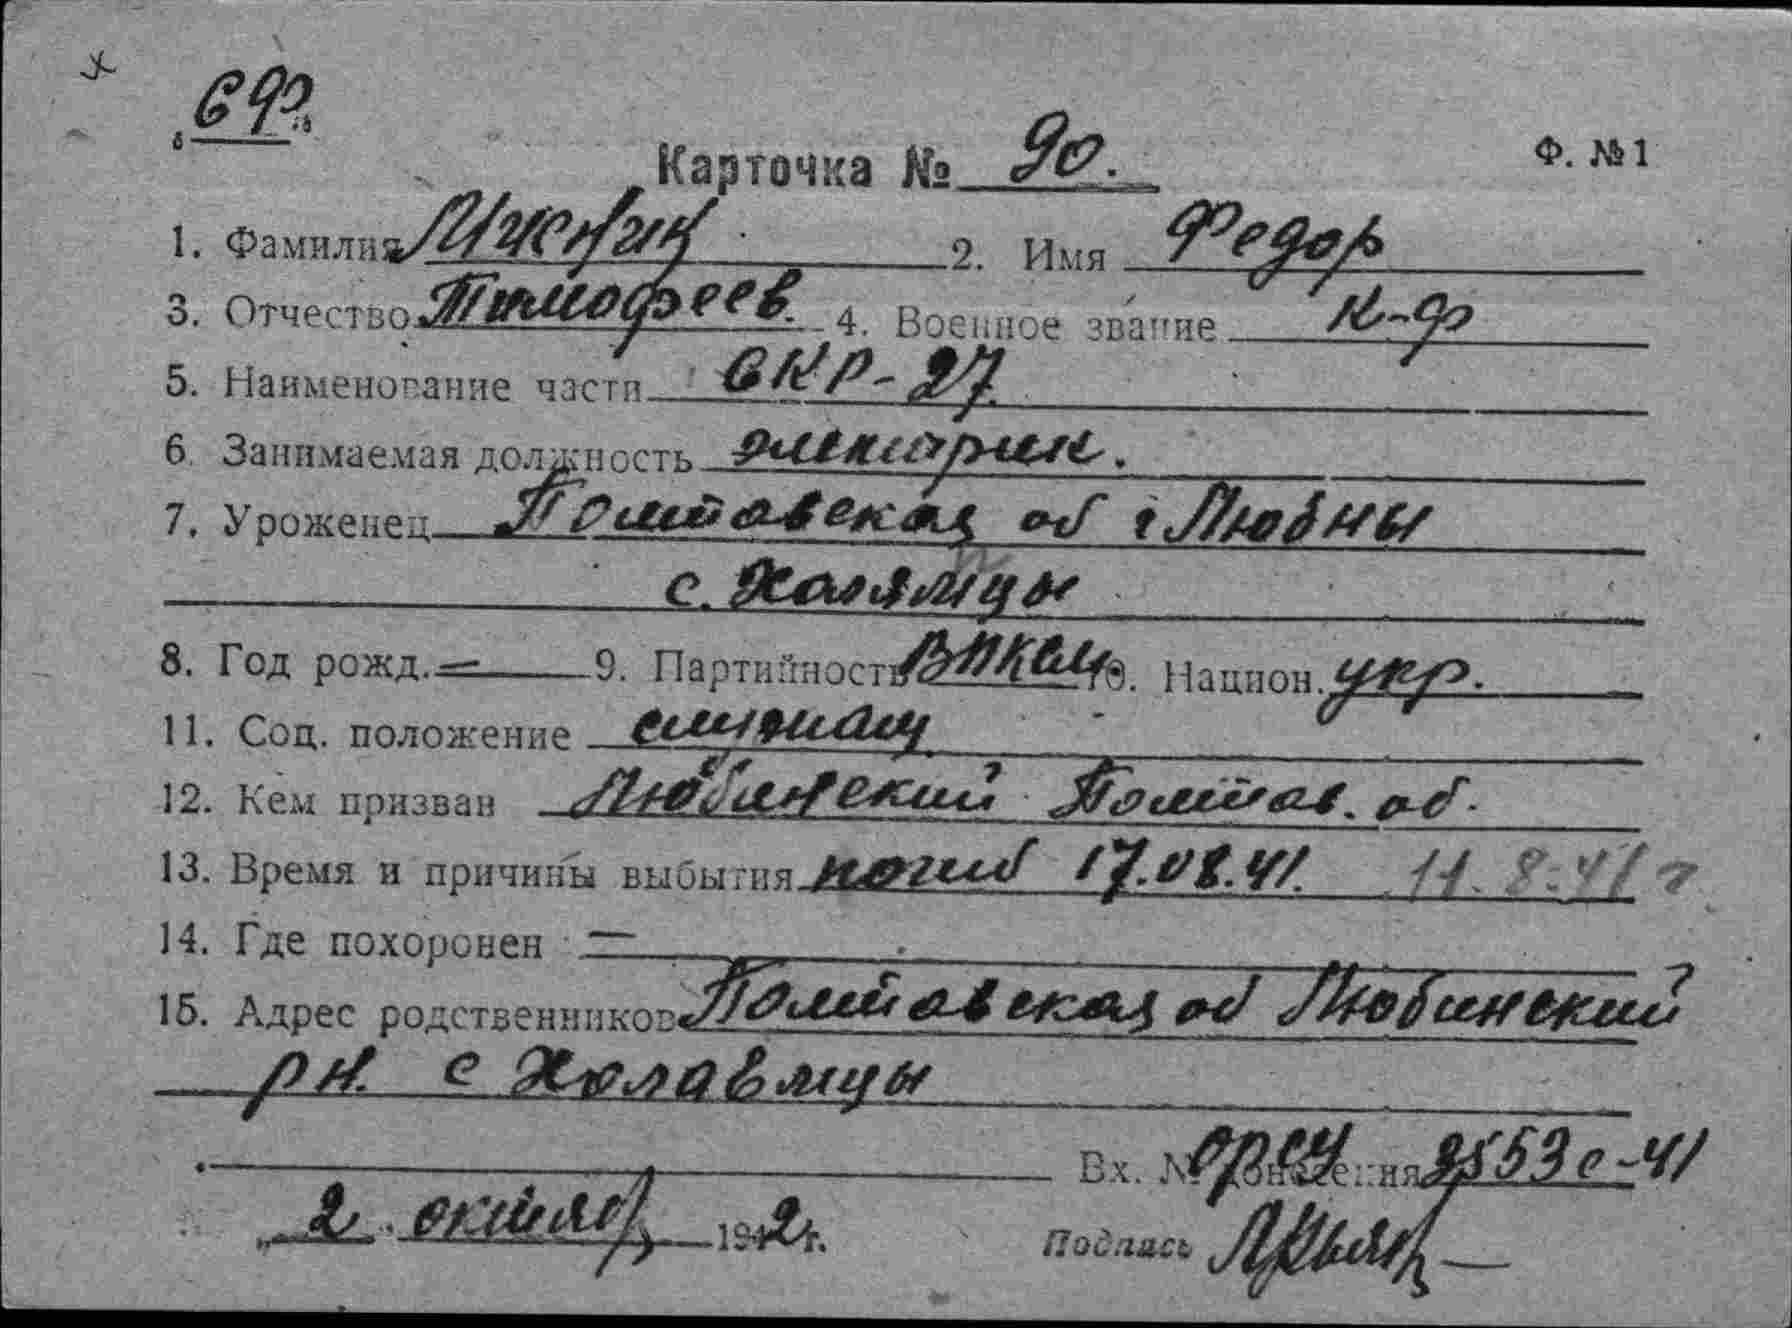 69
Карточка № 90. Ф. №1
1. Фамилия 2. Имя Федор
3. Отчество Тимофеев. 4. Военное звание к-ф
5. Наименование части СКР-27
6. Занимаемая должность электрик.
7. Уроженец Полтавская об г Любны
с. Халявицы
8. Год рожд. — 9. Партийность 10. Национ. укр.
11. Соц. положение служащ
12. Кем призван Любинский Полтав. об.
13. Время и причины выбытия погиб 17.08.41. 11.8.41 г
14. Где похоронен —
15. Адрес родственников Полтавская об Любинский
рн. с Холавмцы
Вх. № донесения 2553с-41
„2" октября 1942г. Подпись